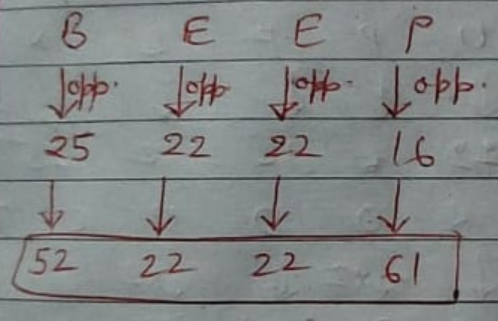 B E E P
opp. opp opp. opp.
25 22 22 16
52 22 22 61